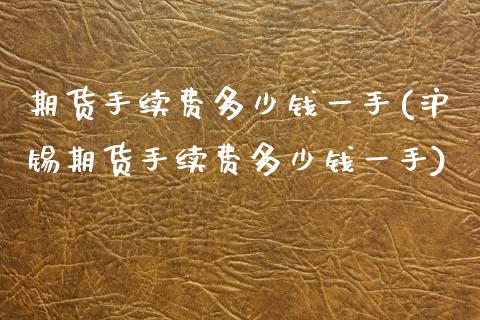 期货手续费多少钱一手(沪
锡期货手续费多少钱一手)